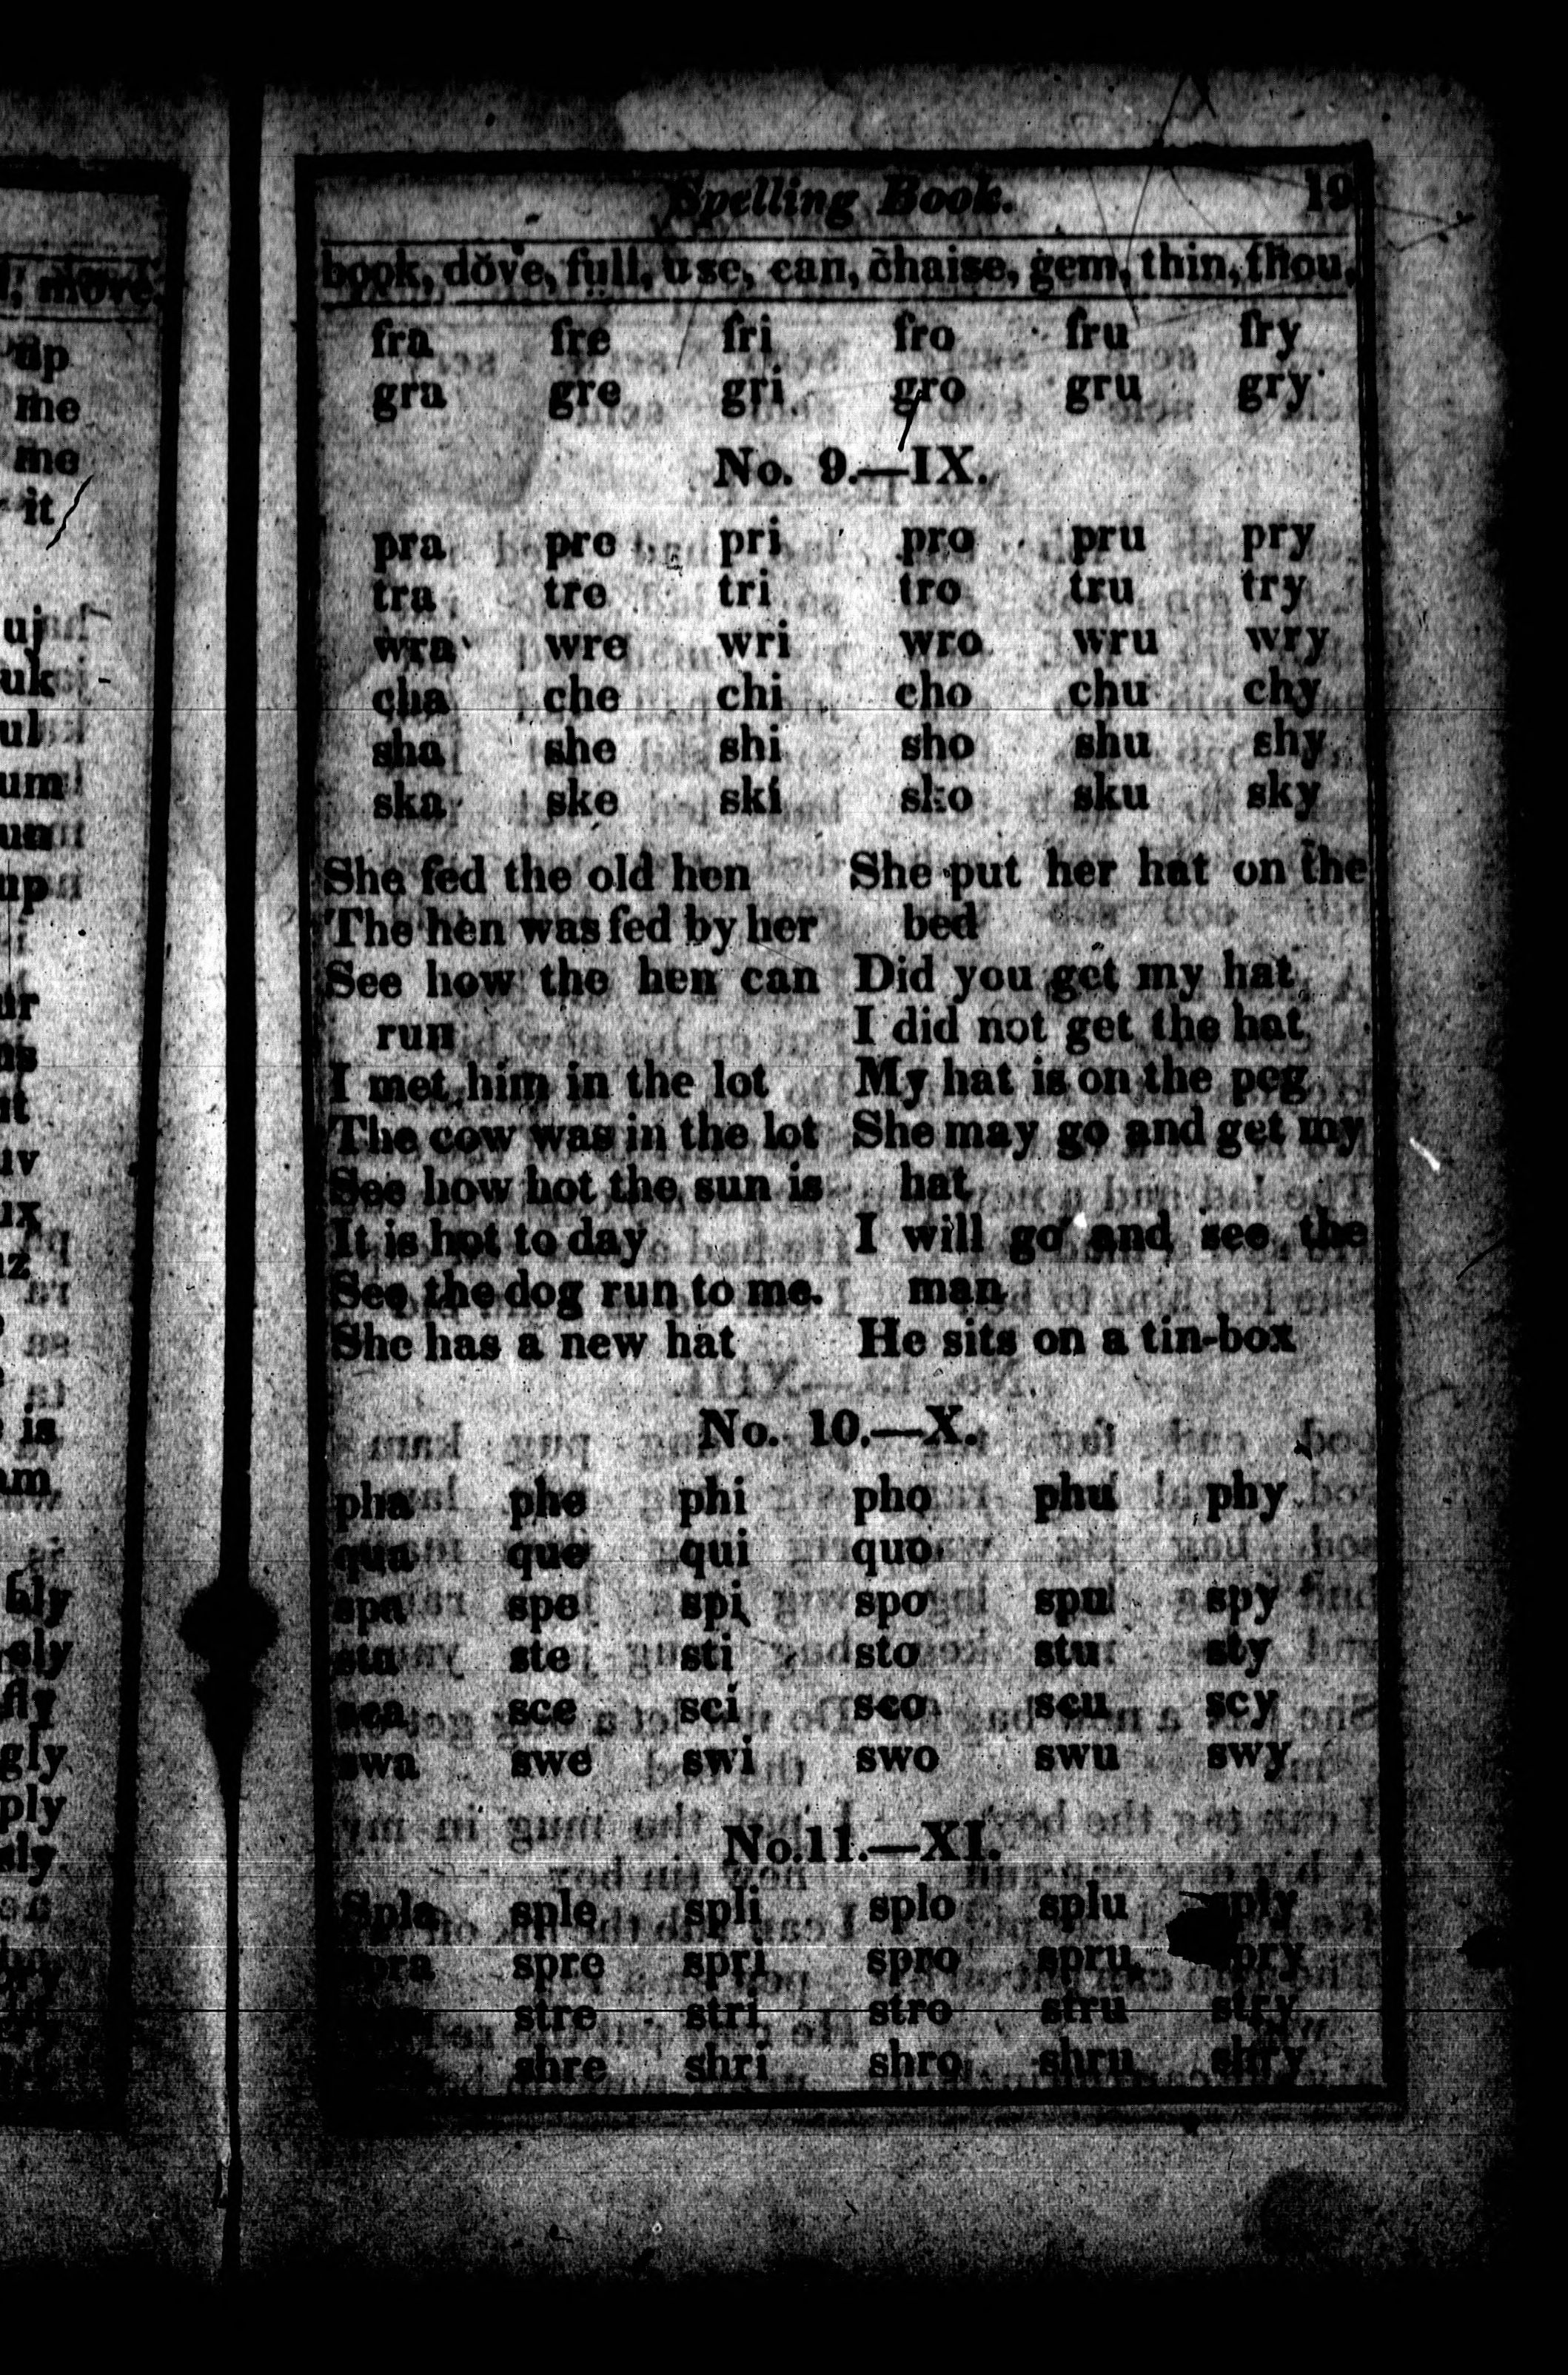 Spelling Book. 19
book, dove, full, use, can, chaise, gem, thin, thou,
fra fre fri fro fru fry
gra gre gri gro gru gry
No. 9.—IX.
pra pre pri pro pru pry
tra tre tri tro tru try
wra wre wri wro wru wry
cha che chi cho chu chy
sha she shi sho shu shy
ska ske ski sko sku sky
She fed the old hen
The hen was fed by her
See how the hen can
run
I met him in the lot
The cow was in the lot
See how hot the sun is
It is hot to day
See the dog run to me.
She has a new hat
She put her hat on the
bed
Did you get my hat
I did not get the hat
My hat is on the peg
She may go and get my
hat
I will go and see the
man
He sits on a tin-box
No. 10.—X.
pha phe phi pho phu phy
qua que qui quo
spa spe spi spo spu spy
sta ste sti sto stu sty
sca sce sci sco scu scy
swa swe swi swo swu swy
No. 11.—XI.
Spla sple spli splo splu sply
spra spre spri spro spru spry
stre stri stro stru stry
shre shri shro shru shry
move.
up
me
me
it
uj
uk
ul
um
un
up
is
am
bly
fly
gly
ply